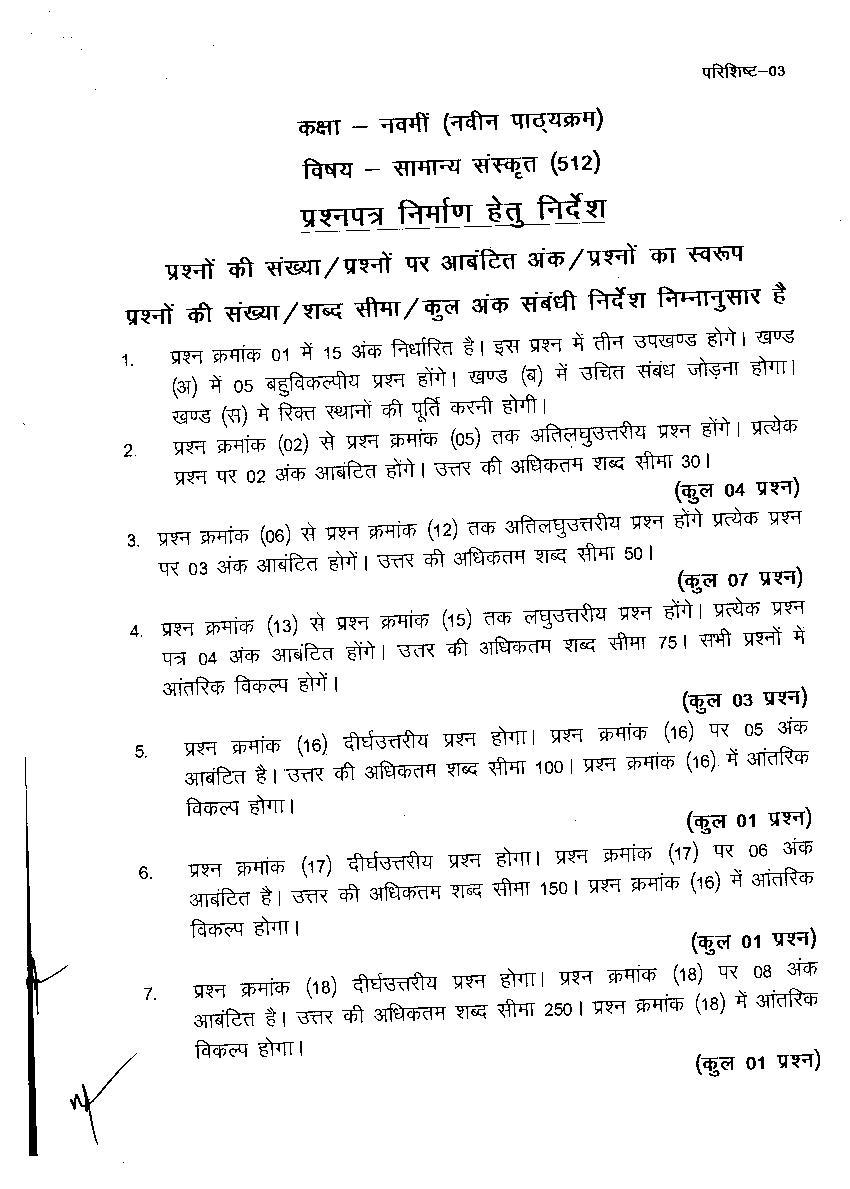 परिशिष्ट–03
कक्षा – नवमीं (नवीन पाठ्यक्रम)
विषय – सामान्य संस्कृत (512)
प्रश्नपत्र निर्माण हेतु निर्देश
प्रश्नों की संख्या/प्रश्नों पर आबंटित अंक/प्रश्नों का स्वरूप
प्रश्नों की संख्या/शब्द सीमा/कुल अंक संबंधी निर्देश निम्नानुसार है
1. प्रश्न क्रमांक 01 में 15 अंक निर्धारित है। इस प्रश्न में तीन उपखण्ड होगे। खण्ड
(अ) में 05 बहुविकल्पीय प्रश्न होंगे। खण्ड (ब) में उचित संबंध जोड़ना होगा।
खण्ड (स) मे रिक्त स्थानों की पूर्ति करनी होगी।
2. प्रश्न क्रमांक (02) से प्रश्न क्रमांक (05) तक अतिलघुउत्तरीय प्रश्न होंगे। प्रत्येक
प्रश्न पर 02 अंक आबंटित होंगे। उत्तर की अधिकतम शब्द सीमा 30।
(कुल 04 प्रश्न)
3. प्रश्न क्रमांक (06) से प्रश्न क्रमांक (12) तक अतिलघुउत्तरीय प्रश्न होंगे प्रत्येक प्रश्न
पर 03 अंक आबंटित होगें। उत्तर की अधिकतम शब्द सीमा 50।
(कुल 07 प्रश्न)
4. प्रश्न क्रमांक (13) से प्रश्न क्रमांक (15) तक लघुउत्तरीय प्रश्न होंगे। प्रत्येक प्रश्न
पत्र 04 अंक आबंटित होंगे। उतर की अधिकतम शब्द सीमा 75। सभी प्रश्नों में
आंतरिक विकल्प होगें।
(कुल 03 प्रश्न)
5. प्रश्न क्रमांक (16) दीर्घउत्तरीय प्रश्न होगा। प्रश्न क्रमांक (16) पर 05 अंक
आबंटित है। उत्तर की अधिकतम शब्द सीमा 100। प्रश्न क्रमांक (16) में आंतरिक
विकल्प होगा।
(कुल 01 प्रश्न)
6. प्रश्न क्रमांक (17) दीर्घउत्तरीय प्रश्न होगा। प्रश्न क्रमांक (17) पर 06 अंक
आबंटित है। उत्तर की अधिकतम शब्द सीमा 150। प्रश्न क्रमांक (16) में आंतरिक
विकल्प होगा।
(कुल 01 प्रश्न)
7. प्रश्न क्रमांक (18) दीर्घउत्तरीय प्रश्न होगा। प्रश्न क्रमांक (18) पर 08 अंक
आबंटित है। उत्तर की अधिकतम शब्द सीमा 250। प्रश्न क्रमांक (18) में आंतरिक
विकल्प होगा।
(कुल 01 प्रश्न)